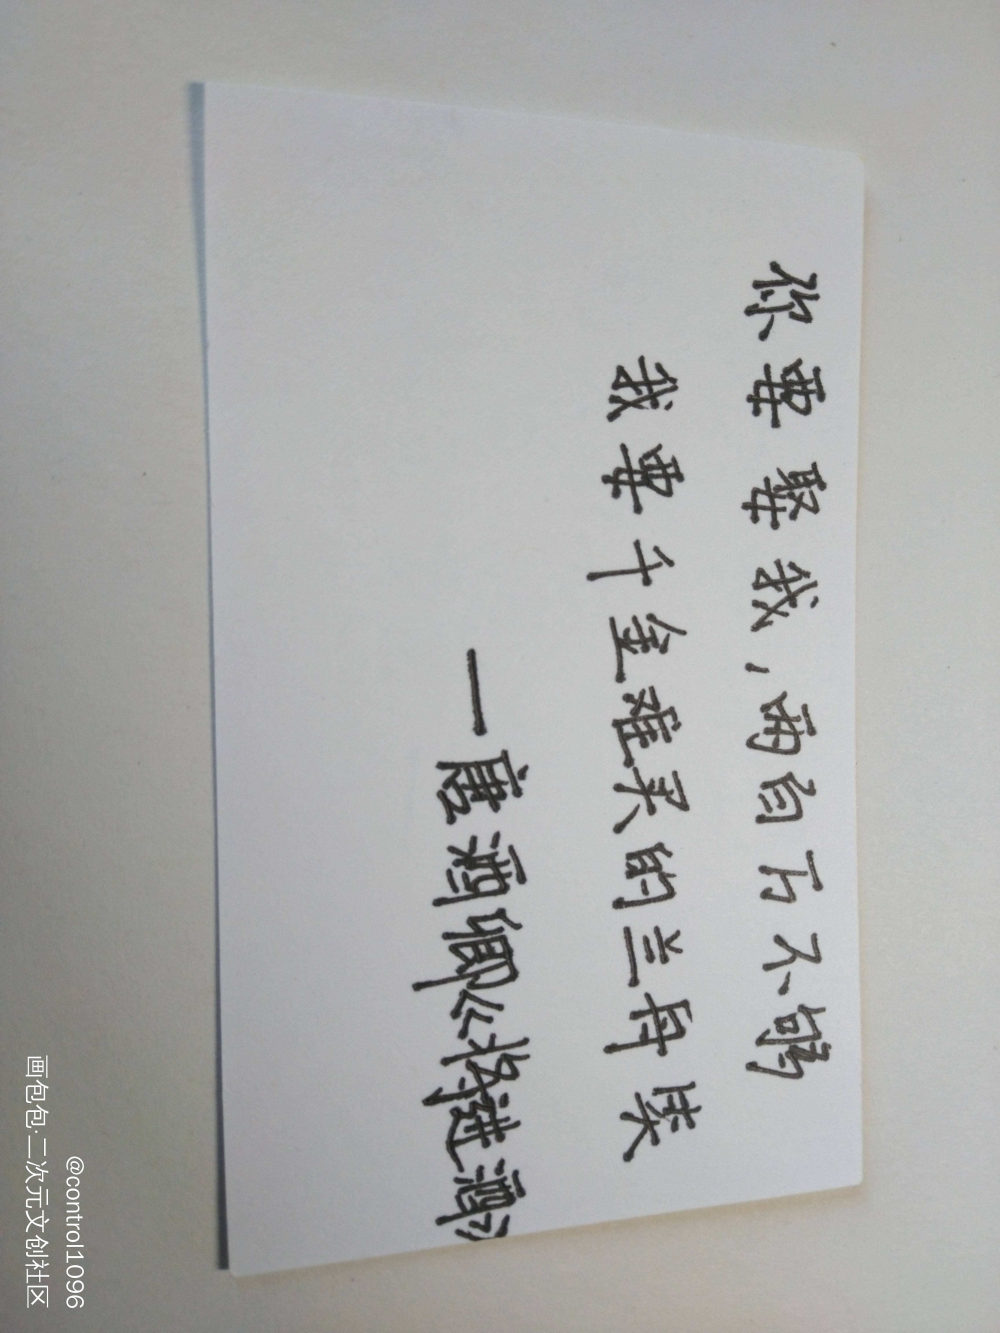 你要娶我，两百万不够
我要千金难买的兰舟湊
—唐酒卿《将进酒》
画包包·二次元文创社区
@control1096